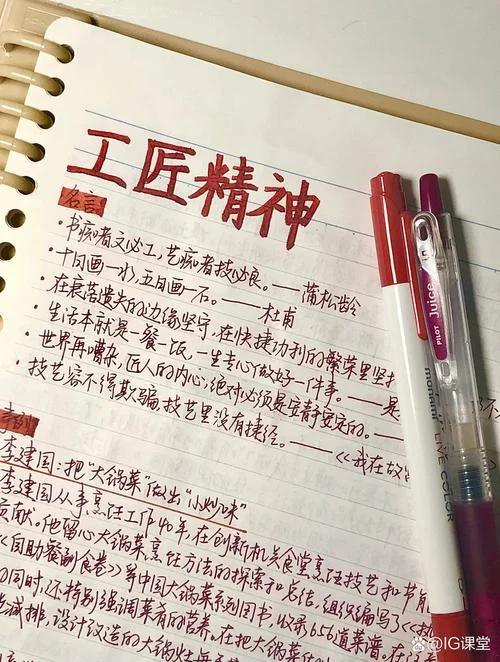 工匠精神
名言
·书痴者文必工,艺痴者技必良。——蒲松龄
·十日画一水,五日画一石。——杜甫
·在衰落遗失的边缘坚守,在快捷功利的繁荣里坚
·生活本就是一餐一饭,一生专心做好一件事。——是
·世界再嘈杂,匠人的内心,绝对必须是安静安定的。——
·技艺容不得欺骗,技艺里没有捷径。——《我在故
李建国:把"大锅菜"做出"小炒味"
李建国从事烹饪工作40年,在创新机关食堂烹饪技艺和节能
贡献。他留心大锅菜烹饪方法的探索和总结,组织编写了《
《自助餐副食卷》等中国大锅菜系列图书,收录656道菜谱。在
同时,还特别强调菜肴的营养。在把大锅菜
减排,设计改造的大锅灶每
PILOT Juice 0.5
monami
LIVE COLOR
@IG课堂